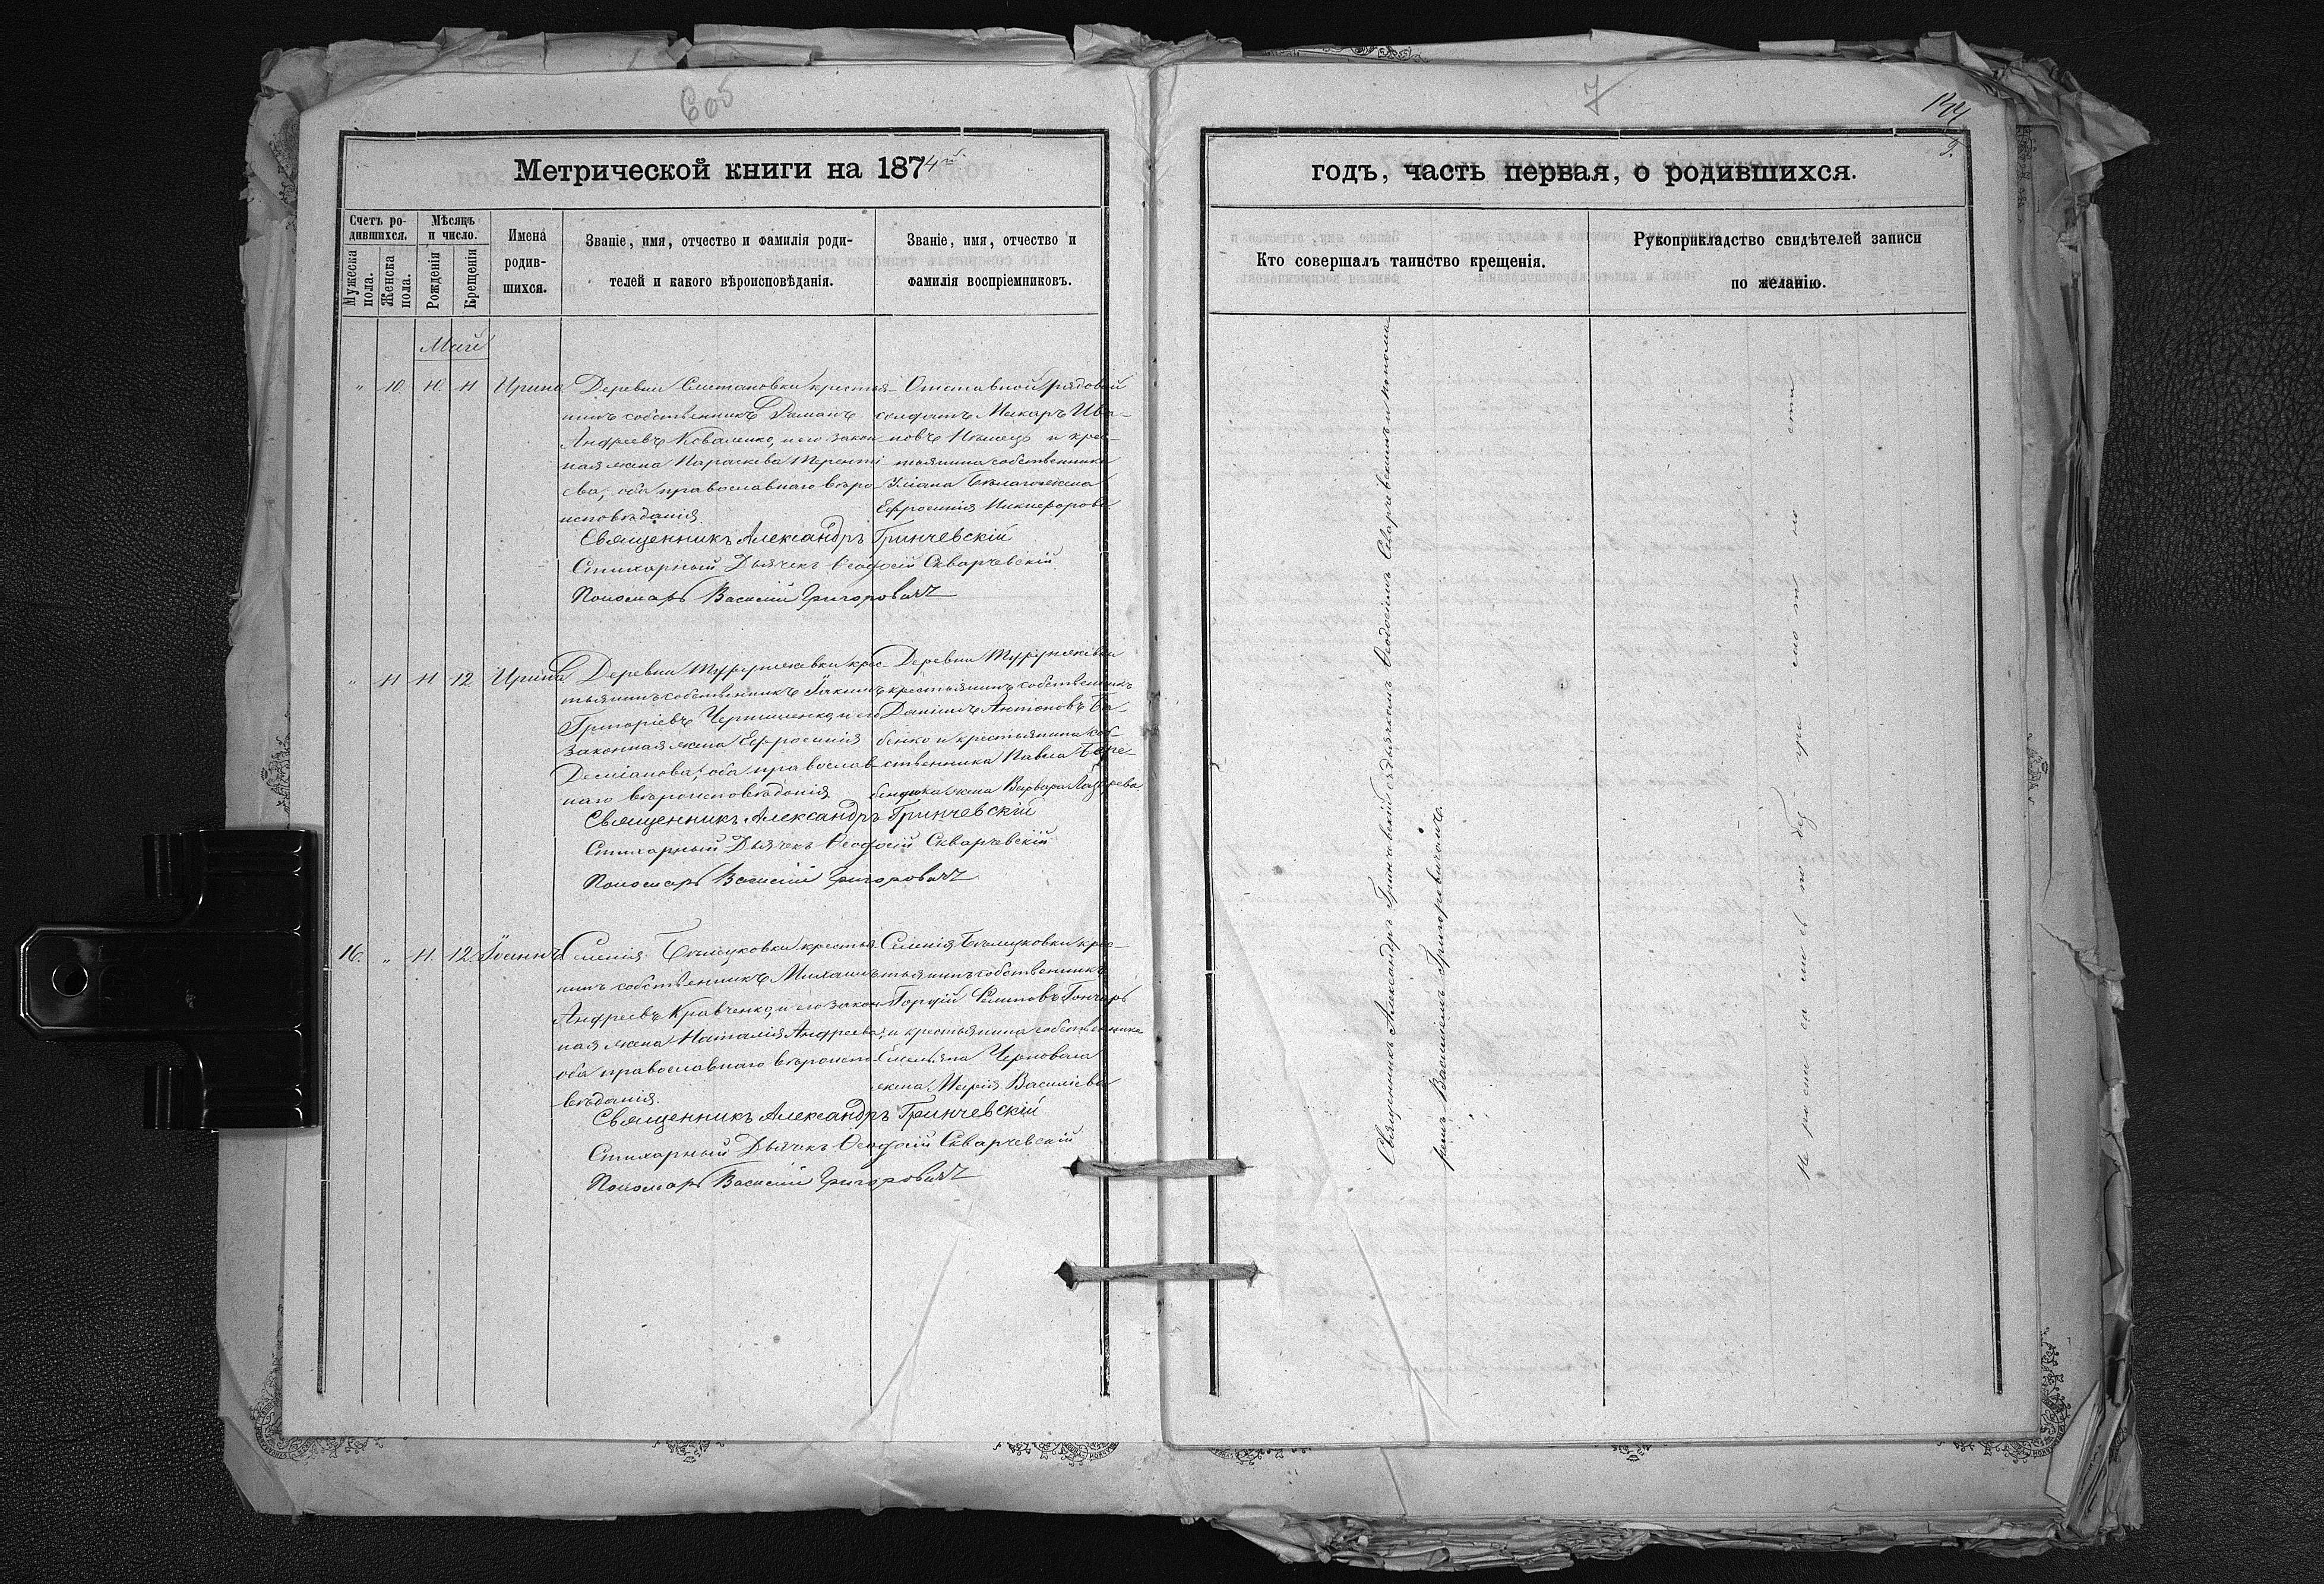 6 об
Метрической книги на 1874й
Счетъ ро-
дившихся.
Мѣсяцъ
и число.
Мужеска
пола.
Женска
пола.
Рожденія
Крещенія
Имена
родив-
шихся.
Званіе, имя, отчество и фамилія роди-
телей и какого вѣроисповѣданія.
Званіе, имя, отчество и
фамилія воспріемниковъ.
Май
" 10. 10. 11 Ирина
Деревни Сметановки крестья-
нинъ собственникъ Даманъ
Андреевъ Коваленко, и его закон
ная жена Параскева Теренті-
ева; оба православнаго вѣро-
исповѣданія.
Отставной рядовой
солдатъ Макаръ Ива-
новъ и крес-
тьянина собственника
жена
Ефросинія Никифорова
Священникъ Александръ Гринчевскій
Стихарный Дьячекъ Ѳеодосій Скварчевскій
Пономарь Василій Григоровичъ
" 11 11 12 Ирина
Деревни крес-
тьянинъ собственникъ Іакимъ
Григоріевъ Черниченко, и его
законная жена Ефросинія
Деміанова; оба православ-
наго вѣроисповѣданія
Деревни
крестьянинъ собственникъ
Даніилъ Антоновъ Ба-
бенко и крестьянина соб-
ственника Павла
жена Варвара Лазарева
Священникъ Александръ Гринчевскій
Стихарный Дьячекъ Ѳеодосій Скварчевскій
Пономарь Василій Григоровичъ
16. " 11. 12. Іоаннъ
Селенія Бѣлецковки крестья-
нинъ собственникъ Михаилъ
Андреевъ Кравченко, и его закон
ная жена Наталія Андреева;
оба православнаго вѣроиспо-
вѣданія.
Селенія Бѣлецковки крес-
тьянинъ собственникъ
Гордій Филиповъ Гончаръ
и крестьянина собственника
Емельяна Черновола
жена Марія Василіева
Священникъ Александръ Гринчевскій
Стихарный Дьячекъ Ѳеодосій Скварчевскій
Пономарь Василій Григоровичъ
7
годъ, часть первая, о родившихся.
Кто совершалъ таинство крещенія.
Рукоприкладство свидѣтелей записи
по желанію.
Священникъ Александръ Гринчевскій съ дьячкомъ Ѳеодосіемъ Скварчевскимъ и понома-
ремъ Василіемъ Григоровичомъ.